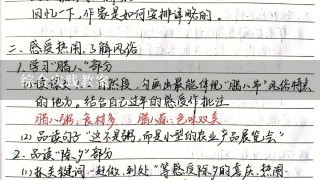 回忆一下,作家是如何安排详略的。
二、感受热闹,了解风俗
1.学习“腊八”部分
自然段,勾画出最能体现“腊八节”风俗特点
的地方。结合自己过年的感受作批注
腊八粥:食材多 腊八蒜:色味双美
(2)品读句子“这不是粥,而是小型的农业产品展览会”
2.品读“除夕”部分
(1)抓关键词“赶做、到处”等感受除夕的喜庆、热闹
综合实践教案